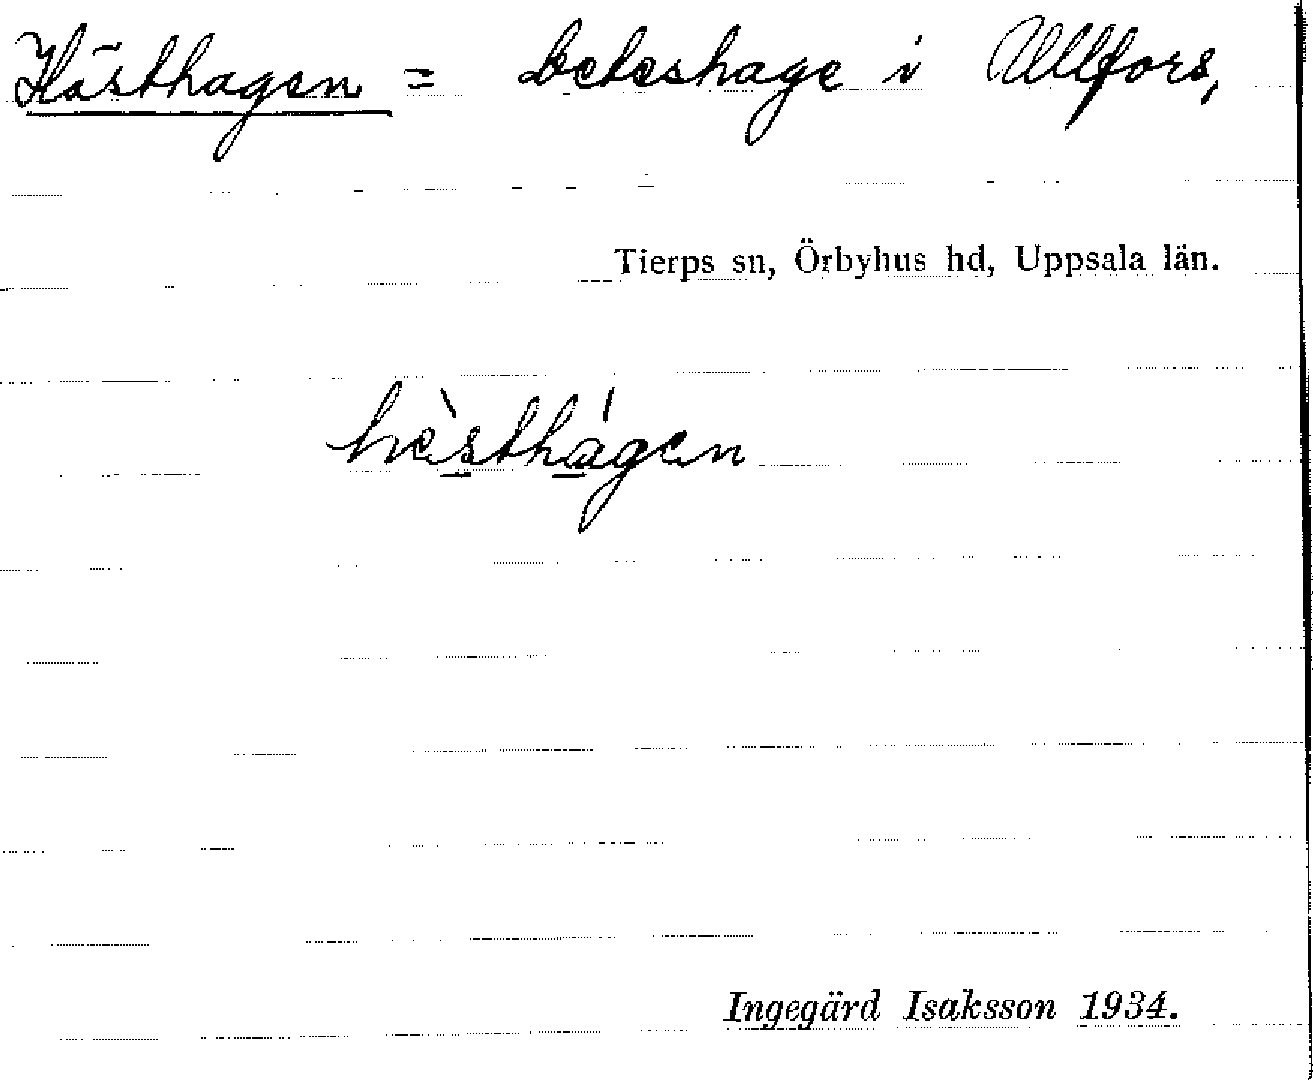 Hästhagen = beteshage i Ullfors,
Tierps sn, Örbyhus hd, Uppsala län.
hèsthágen
Ingegärd Isaksson 1934.